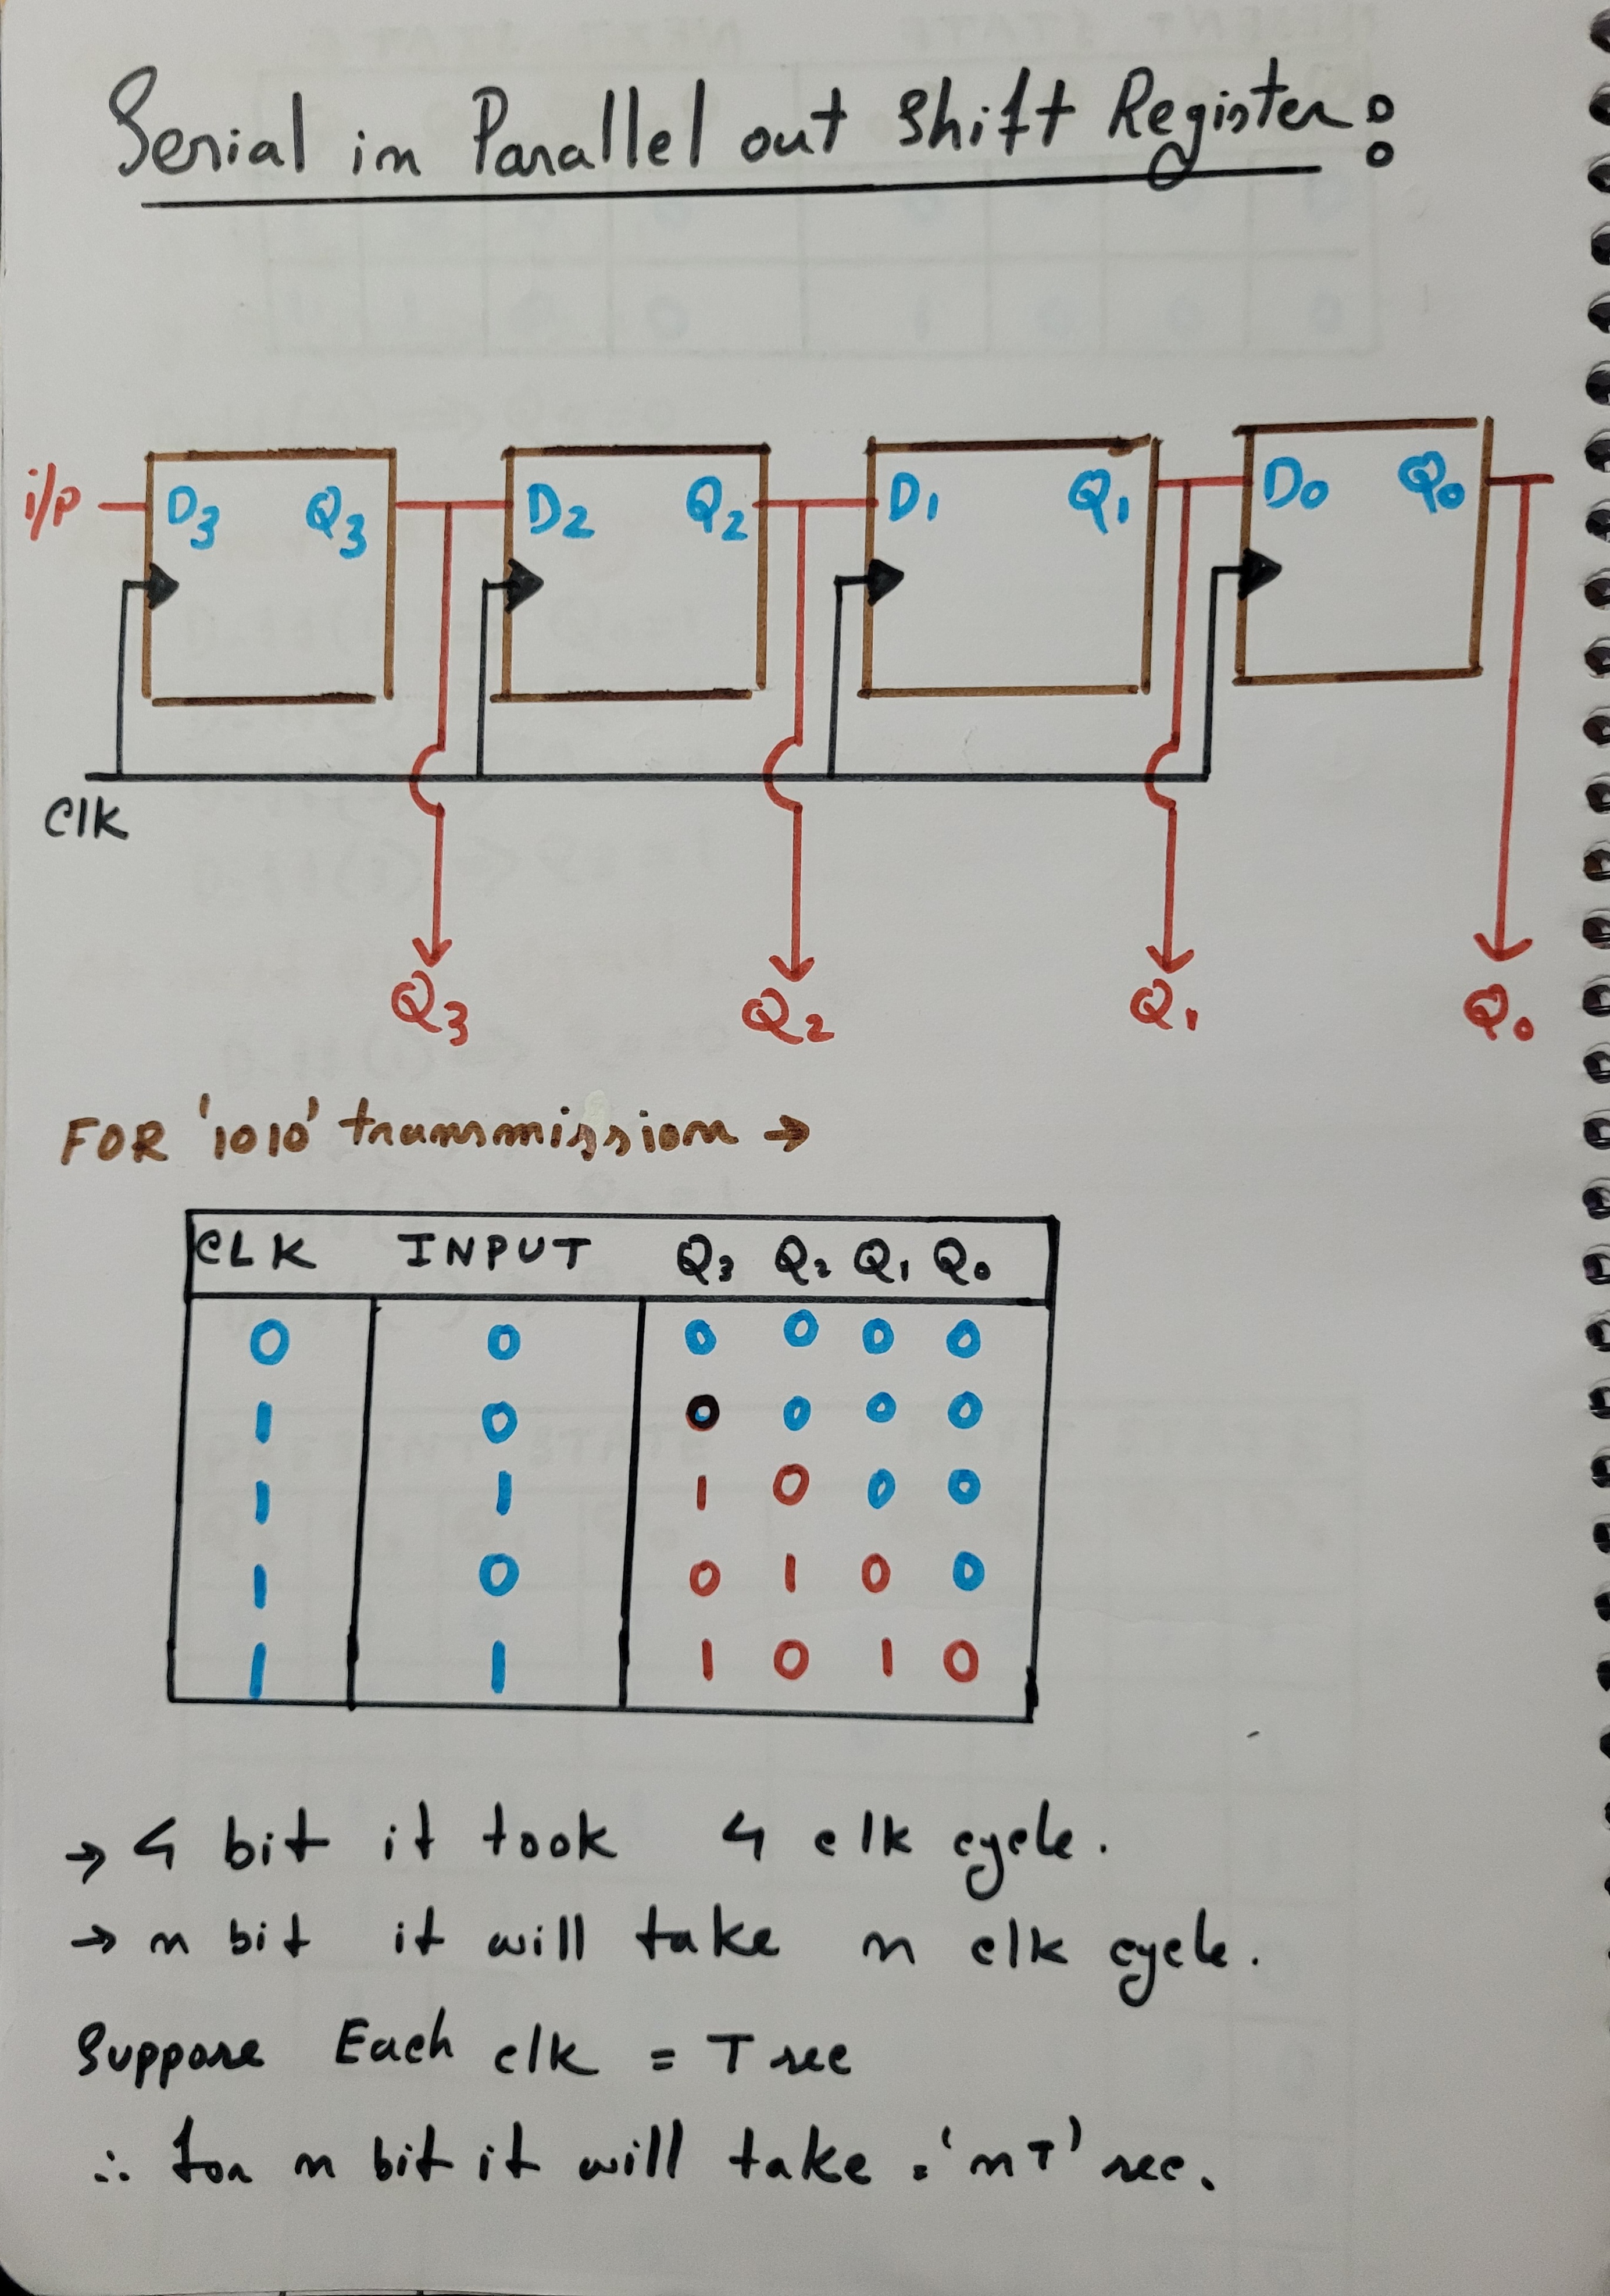 Serial in Parallel out Shift Register:
i/p D3 Q3 D2 Q2 D1 Q1 D0 Q0
Clk
Q3 Q2 Q1 Q0
FOR '1010' transmission →
CLK INPUT Q3 Q2 Q1 Q0
0 0 0 0 0 0
1 0 0 0 0 0
1 1 1 0 0 0
1 0 0 1 0 0
1 1 1 0 1 0
→ 4 bit it took 4 clk cycle.
→ n bit it will take n clk cycle.
Suppose Each clk = T sec
∴ for n bit it will take = 'nT' sec.